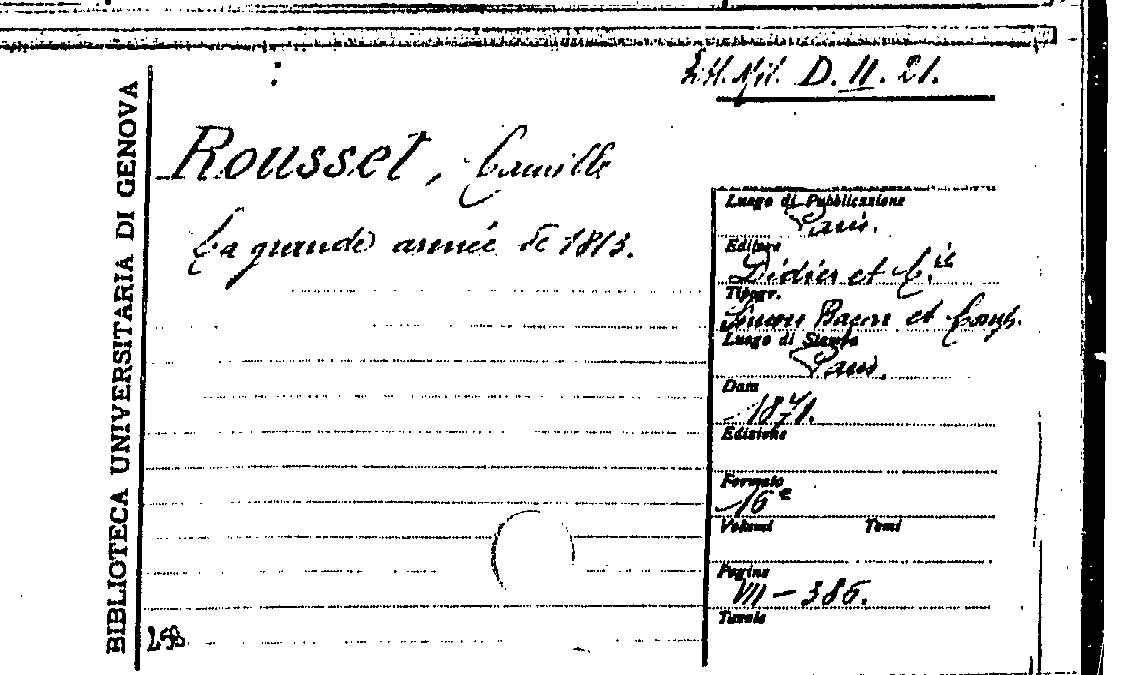 BIBLIOTECA UNIVERSITARIA DI GENOVA
Mil. D. II. 21.
Rousset, Camille
La grande armée de 1813.
Luogo di Pubblicazione
Paris.
Editore
Didier et C.ie
Tipogr.
Simon Raçon et Comp.
Luogo di Stampa
Paris.
Data
1871.
Edizione
Formato
16°
Volumi Tomi
Pagine
VII - 386.
Tavole
258